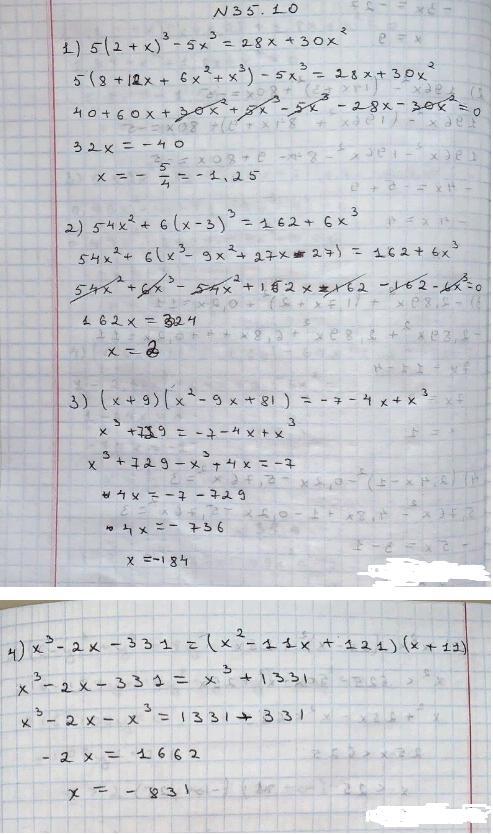 N35.10
1) 5(2+x)³-5x³=28x+30x²
5(8+12x+6x²+x³)-5x³=28x+30x²
40+60x+30x²+5x³-5x³-28x-30x²=0
32x=-40
x=-5/4=-1,25
2) 54x²+6(x-3)³=162+6x³
54x²+6(x³-9x²+27x-27)=162+6x³
54x²+6x³-54x²+162x-162-162-6x³=0
162x=324
x=2
3) (x+9)(x²-9x+81)=-7-4x+x³
x³+729=-7-4x+x³
x³+729-x³+4x=-7
4x=-7-729
4x=-736
x=-184
4) x³-2x-331=(x²-11x+121)(x+11)
x³-2x-331=x³+1331
x³-2x-x³=1331+331
-2x=1662
x=-831